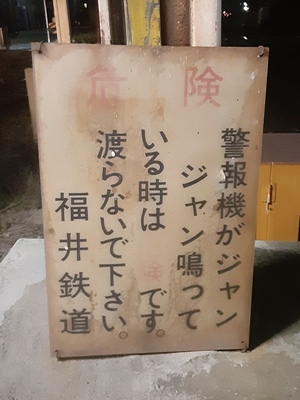 危険
警報機がジャン
ジャン鳴って
いる時は です。
渡らないで下さい。
福井鉄道